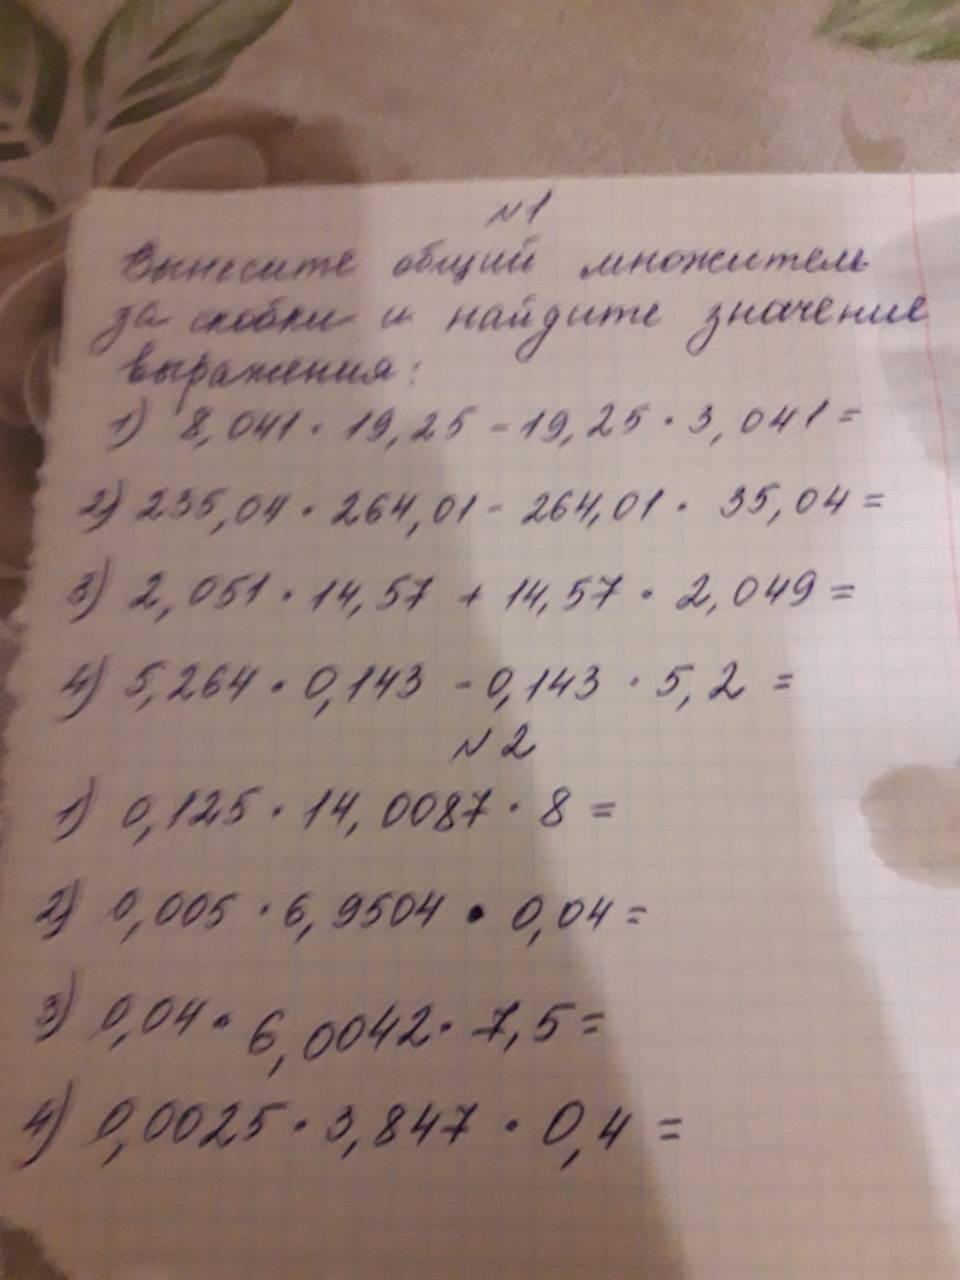 №1
Вынесите общий множитель
за скобки и найдите значение
выражения:
1) 8,041 · 19,25 - 19,25 · 3,041 =
2) 235,04 · 264,01 - 264,01 · 35,04 =
3) 2,051 · 14,57 + 14,57 · 2,049 =
4) 5,264 · 0,143 - 0,143 · 5,2 =
№2
1) 0,125 · 14,0087 · 8 =
2) 0,005 · 6,9504 · 0,04 =
3) 0,04 · 6,0042 · 7,5 =
4) 0,0025 · 3,847 · 0,4 =